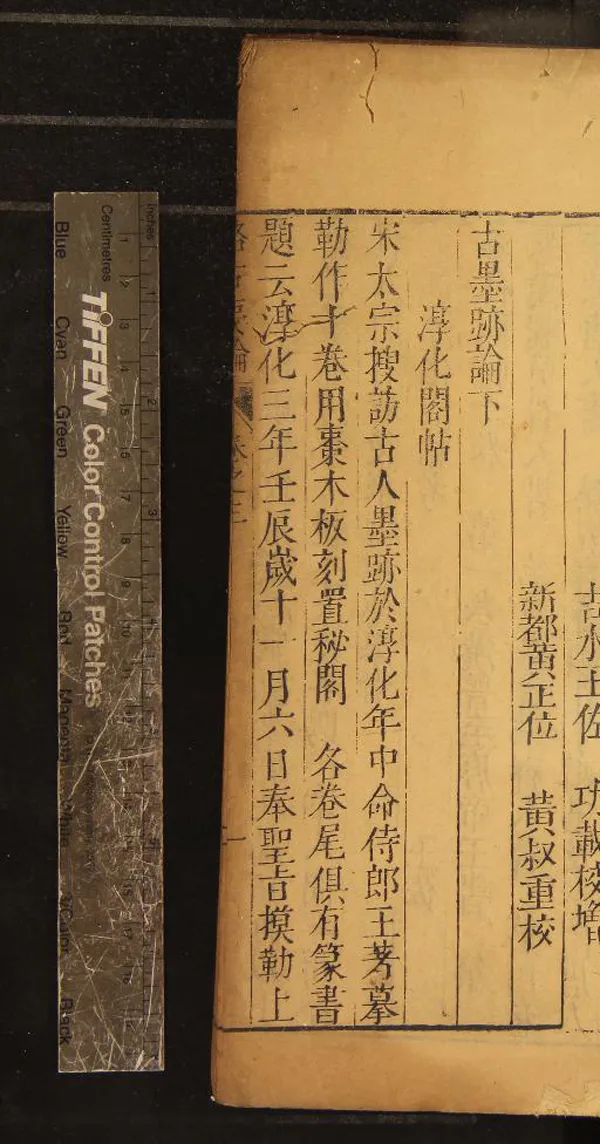 吉水王佐　功載校增
新都黃正位　黃叔重校
古墨跡論下
淳化閣帖
宋太宗搜訪古人墨跡於淳化年中命侍郎王著摹
勒作十卷用棗木板刻置秘閣　各卷尾俱有篆書
題云淳化三年壬辰歲十一月六日奉聖旨摸勒上
格古要論　卷之三　一
Inches
Centimetres
TIFFEN Color Control Patches
Blue
Cyan
Green
Yellow
Red
Magenta
Black